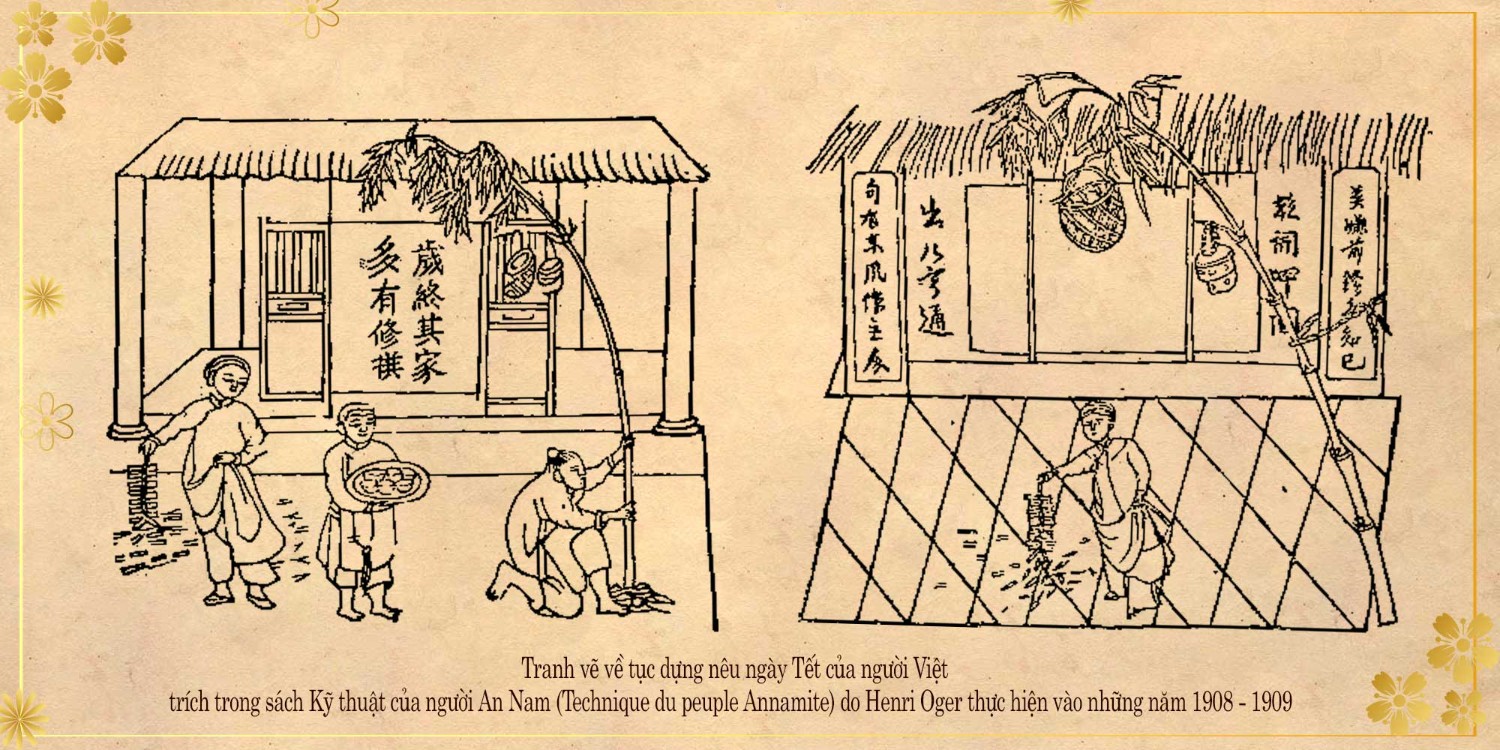 歲終其家
多有修撰
出入亨通
Tranh vẽ về tục dựng nêu ngày Tết của người Việt
trích trong sách Kỹ thuật của người An Nam (Technique du peuple Annamite) do Henri Oger thực hiện vào những năm 1908 - 1909